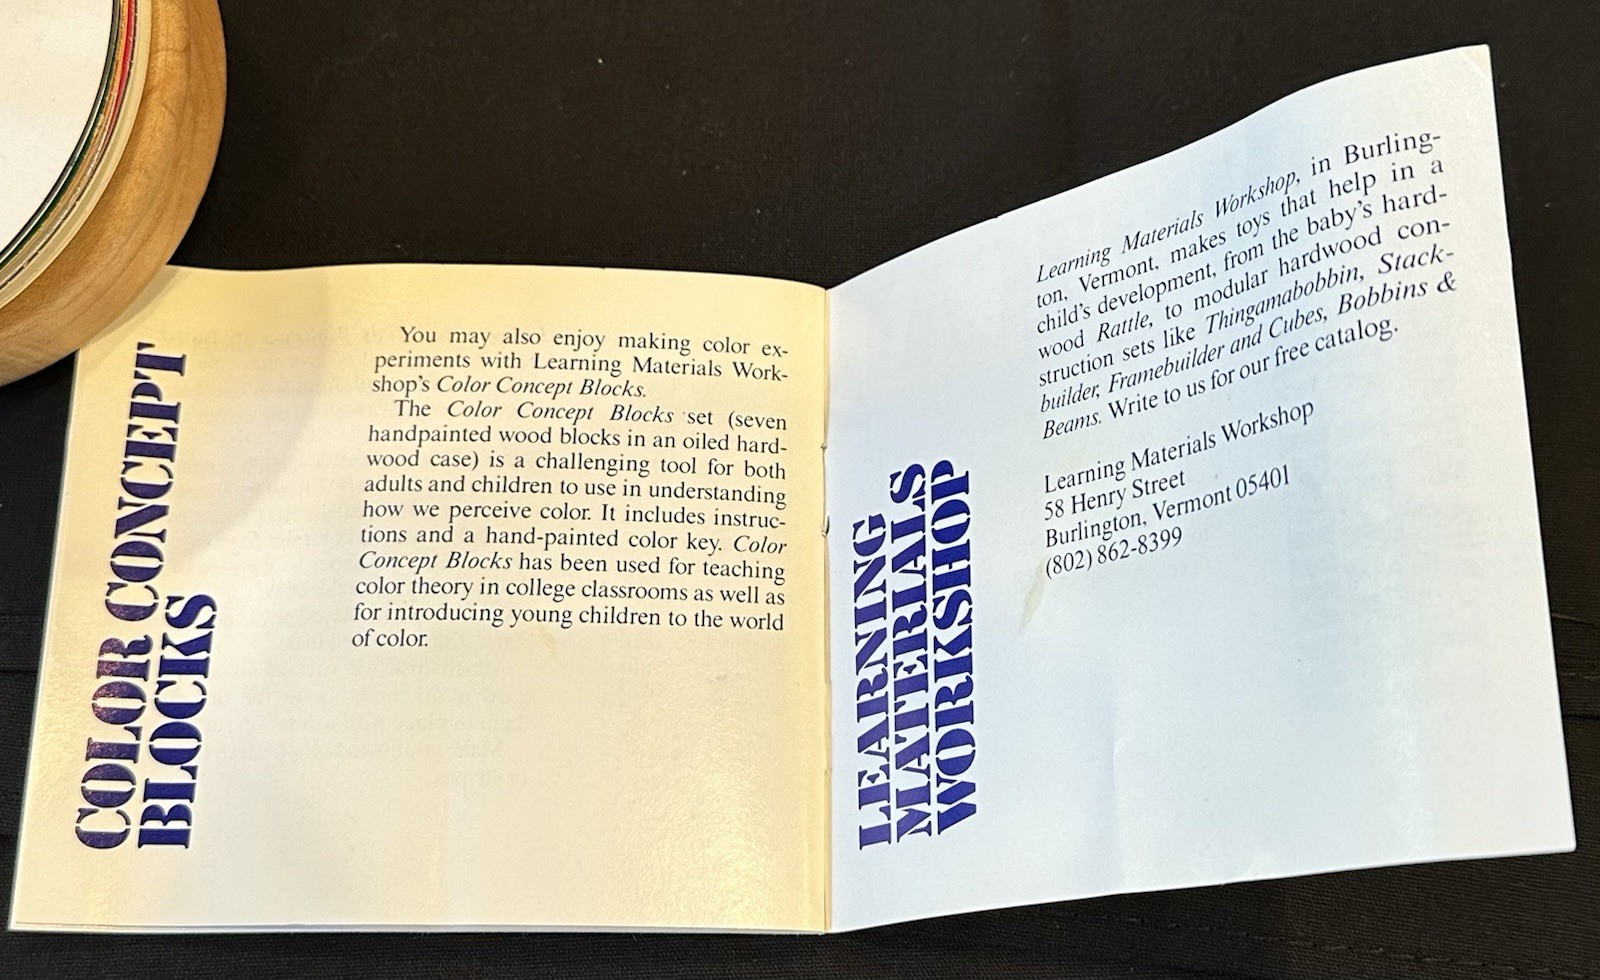 COLOR CONCEPT
BLOCKS
You may also enjoy making color ex-
periments with Learning Materials Work-
shop's Color Concept Blocks.
The Color Concept Blocks set (seven
handpainted wood blocks in an oiled hard-
wood case) is a challenging tool for both
adults and children to use in understanding
how we perceive color. It includes instruc-
tions and a hand-painted color key. Color
Concept Blocks has been used for teaching
color theory in college classrooms as well as
for introducing young children to the world
of color.
LEARNING
MATERIALS
WORKSHOP
Learning Materials Workshop, in Burling-
ton, Vermont, makes toys that help in a
child's development, from the baby's hard-
wood Rattle, to modular hardwood con-
struction sets like Thingamabobbin, Stack-
builder, Framebuilder and Cubes, Bobbins &
Beams. Write to us for our free catalog.
Learning Materials Workshop
58 Henry Street
Burlington, Vermont 05401
(802) 862-8399